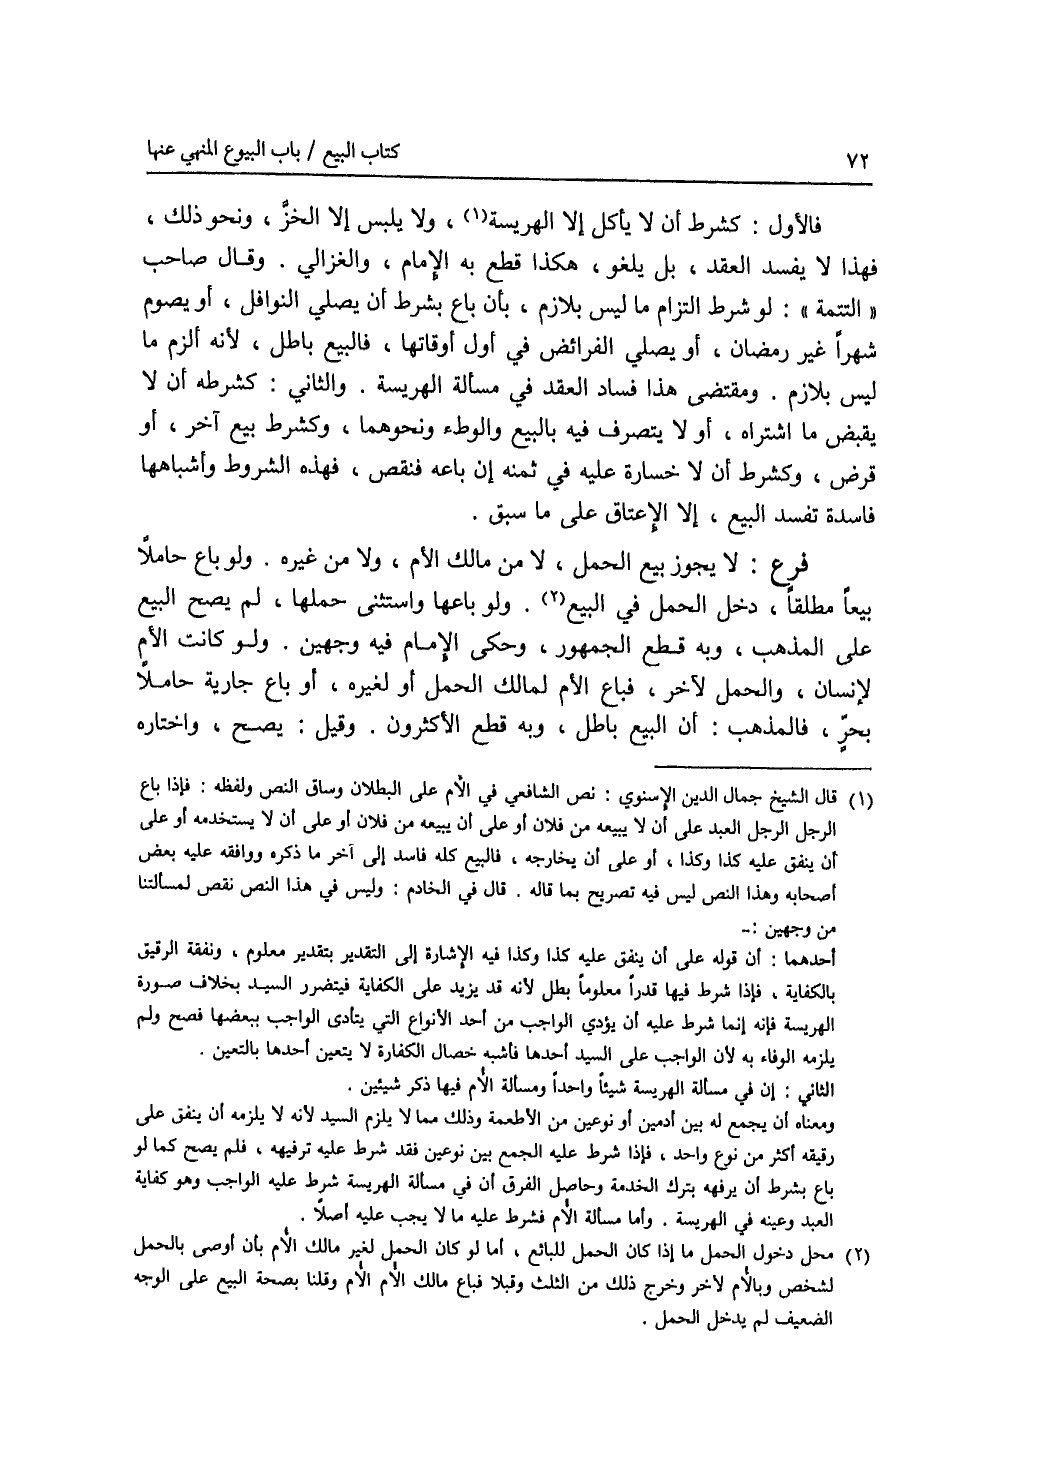 ٧٢
كتاب البيع / باب البيوع المنهي عنها
فالأول : كشرط أن لا يأكل إلا الهريسة(١) ، ولا يلبس إلا الخزَّ ، ونحو ذلك ،
فهذا لا يفسد العقد ، بل يلغو ، هكذا قطع به الإمام ، والغزالي . وقال صاحب
« التتمة » : لو شرط التزام ما ليس بلازم ، بأن باع بشرط أن يصلي النوافل ، أو يصوم
شهراً غير رمضان ، أو يصلي الفرائض في أول أوقاتها ، فالبيع باطل ، لأنه ألزم ما
ليس بلازم . ومقتضى هذا فساد العقد في مسألة الهريسة . والثاني : كشرطه أن لا
يقبض ما اشتراه ، أو لا يتصرف فيه بالبيع والوطء ونحوهما ، وكشرط بيع آخر ، أو
قرض ، وكشرط أن لا خسارة عليه في ثمنه إن باعه فنقص ، فهذه الشروط وأشباهها
فاسدة تفسد البيع ، إلا الإعتاق على ما سبق .
فرع : لا يجوز بيع الحمل ، لا من مالك الأم ، ولا من غيره . ولو باع حاملاً
بيعاً مطلقاً ، دخل الحمل في البيع(٢) . ولو باعها واستثنى حملها ، لم يصح البيع
على المذهب ، وبه قطع الجمهور ، وحكى الإمام فيه وجهين . ولو كانت الأم
لإنسان ، والحمل لآخر ، فباع الأم لمالك الحمل أو لغيره ، أو باع جارية حاملاً
بحرٍّ ، فالمذهب : أن البيع باطل ، وبه قطع الأكثرون . وقيل : يصح ، واختاره
(١) قال الشيخ جمال الدين الإسنوي : نص الشافعي في الأم على البطلان وساق النص ولفظه : فإذا باع
الرجل الرجل العبد على أن لا يبيعه من فلان أو على أن يبيعه من فلان أو على أن لا يستخدمه أو على
أن ينفق عليه كذا وكذا ، أو على أن يخارجه ، فالبيع كله فاسد إلى آخر ما ذكره ووافقه عليه بعض
أصحابه وهذا النص ليس فيه تصريح بما قاله . قال في الخادم : وليس في هذا النص نقص لمسألتنا
من وجهين :-
أحدهما : أن قوله على أن ينفق عليه كذا وكذا فيه الإشارة إلى التقدير بتقدير معلوم ، ونفقة الرقيق
بالكفاية ، فإذا شرط فيها قدراً معلوماً بطل لأنه قد يزيد على الكفاية فيتضرر السيد بخلاف صورة
الهريسة فإنه إنما شرط عليه أن يؤدي الواجب من أحد الأنواع التي يتأدى الواجب ببعضها فصح ولم
يلزمه الوفاء به لأن الواجب على السيد أحدها فأشبه خصال الكفارة لا يتعين أحدها بالتعين .
الثاني : إن في مسألة الهريسة شيئاً واحداً ومسألة الأم فيها ذكر شيئين .
ومعناه أن يجمع له بين أدمين أو نوعين من الأطعمة وذلك مما لا يلزم السيد لأنه لا يلزمه أن ينفق على
رقيقه أكثر من نوع واحد ، فإذا شرط عليه الجمع بين نوعين فقد شرط عليه ترفيهه ، فلم يصح كما لو
باع بشرط أن يرفهه بترك الخدمة وحاصل الفرق أن في مسألة الهريسة شرط عليه الواجب وهو كفاية
العبد وعينه في الهريسة . وأما مسألة الأم فشرط عليه ما لا يجب عليه أصلاً .
(٢) محل دخول الحمل ما إذا كان الحمل للبائع ، أما لو كان الحمل لغير مالك الأم بأن أوصى بالحمل
لشخص وبالأم لآخر وخرج ذلك من الثلث وقبلا فباع مالك الأم الأم وقلنا بصحة البيع على الوجه
الضعيف لم يدخل الحمل .